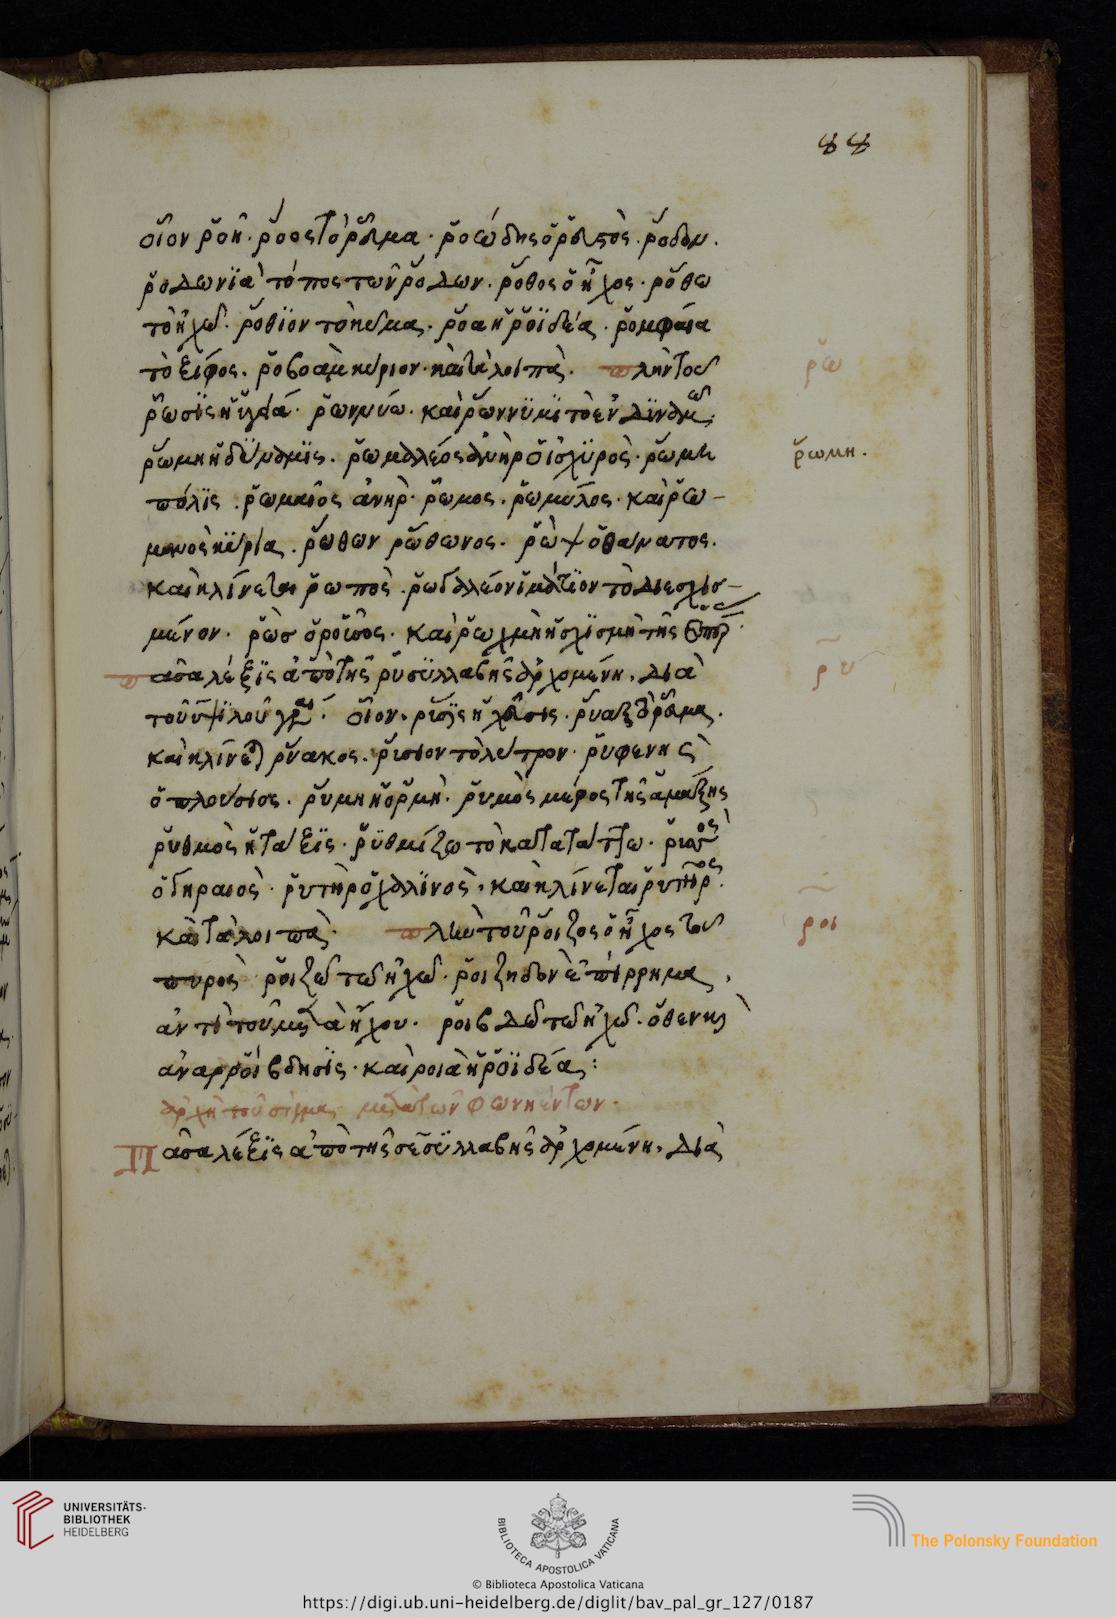 88
οἷον ῥοή. ῥόος τὸ ῥεῦμα. ῥοώδης ὁ ῥευστός. ῥόδον.
ῥοδωνϊὰ ὁ τόπος τῶν ῥόδων. ῥόθος ὁ ἦχος. ῥοθῶ
τὸ ἠχῶ. ῥόθϊον τὸ κῦμα. ῥοα ἡ ῥοϊδέα. ῥομφαία
τὸ ξίφος. ῥοβοὰμ κύριον. καὶ τὰ λοιπά. πλὴν τοῦ
ῥω
ῥῶσϊς ἡ ὑγεία. ῥωννύω. καὶ ῥώννϋμϊ τὸ ἐνδϋναμῶ.
ῥώμη ἡ δύναμϊς. ῥωμαλέος ἀνὴρ ὁ ἰσχϋρός. ῥώμη
ῥώμη.
πόλϊς. ῥωμαῖος ἀνήρ. ῥῶμος. ῥωμύλος. καὶ ῥω-
μανὸς κύρια. ῥώθων ῥώθωνος. ῥὼψ ὁ θάμνος.
καὶ κλίνεται ῥωπός. ῥωγαλέον ἱμάτϊον τὸ διεσχισ-
μένον. ῥὼσ ὁ ῥούσιος. καὶ ῥωχμὴ ἡ σχϊσμὴ τῆς
πᾶσα λέξϊς ἀπὸ τῆς ρυ σϋλλαβῆς ἀρχομένη, διὰ
ρυ
τοῦ υ ψϊλοῦ γράφεται. οἷον, ῥύσϊς ἡ χύσις. ῥύαξ τὸ ῥεῦμα.
καὶ κλίνεται ῥύακος. ῥύσιον τὸ λύτρον. ῥυφενὴς
ὁ πλούσιος. ῥύμη ἡ ὁρμή. ῥυμὸς μέρος τῆς ἁμάξης
ῥυθμὸς ἡ τάξϊς. ῥϋθμίζω τὸ κατατάττω. ῥυσὸς
ὁ γηραιός. ῥυτὴρ ὁ χαλϊνός, καὶ κλίνεται ῥυτῆρος.
καὶ τὰ λοιπά. πλὴν τοῦ ῥοῖζος ὁ ἦχος τοῦ
ροι
πυρός ῥοιζῶ τὸ ἠχῶ. ῥοιζηδὸν ἐπίρρημα,
ἀντὶ τοῦ μετὰ ἤχου. ῥοιβδῶ τὸ ἠχῶ. ὅθεν καὶ
ἀναρροίβδησϊς. καὶ ροιὰ ἡ ῥοϊδέα:
ἀρχὴ τοῦ σίγμα μετὰ τῶν φωνηέντων.
Πᾶσα λέξϊς ἀπὸ τῆς σε σϋλλαβῆς ἀρχομένη, διὰ
UNIVERSITÄTS-
BIBLIOTHEK
HEIDELBERG
BIBLIOTECA APOSTOLICA VATICANA
The Polonsky Foundation
© Biblioteca Apostolica Vaticana
https://digi.ub.uni-heidelberg.de/diglit/bav_pal_gr_127/0187